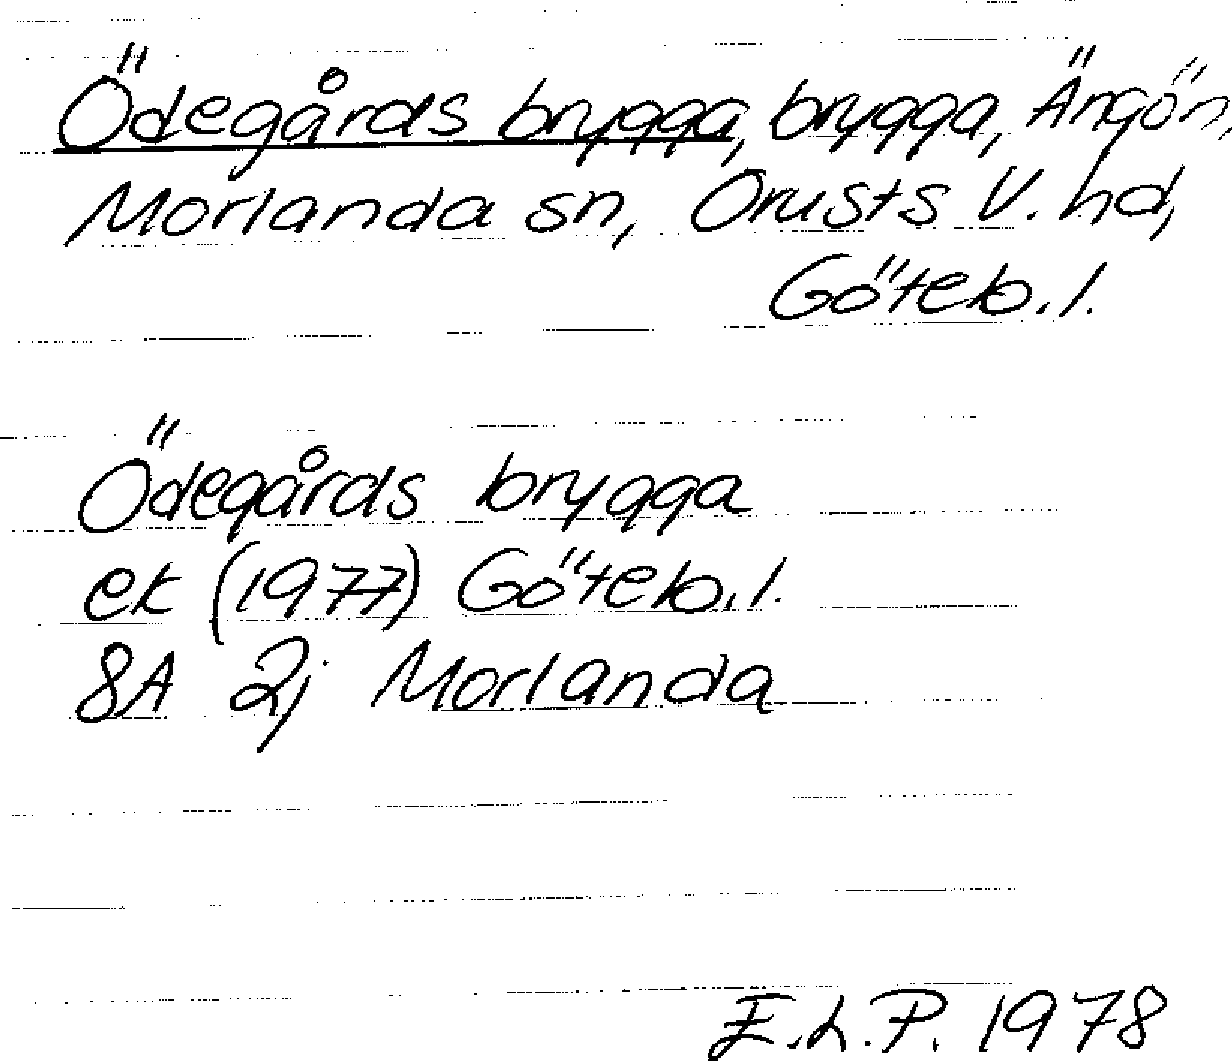 Ödegårds brygga, brygga, Ängön,
Morlanda sn, Orusts V. hd,
Göteb. l.
Ödegårds brygga
ek (1977) Göteb. l.
8A 2j Morlanda
E.L.P. 1978